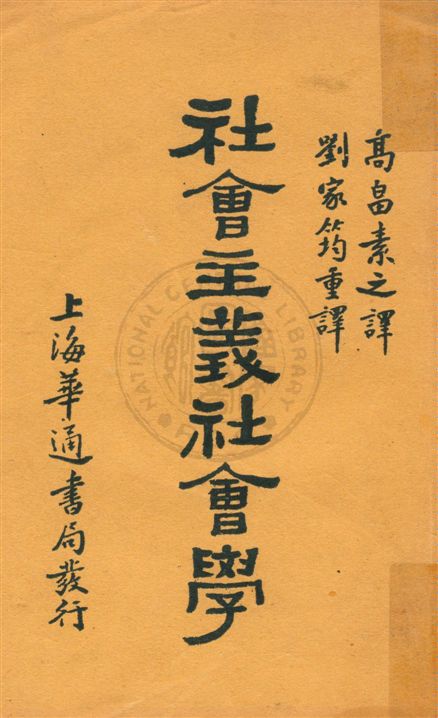 高畠素之譯
劉家筠重譯
社會主義社會學
上海華通書局發行
NATIONAL CE
LIBRARY